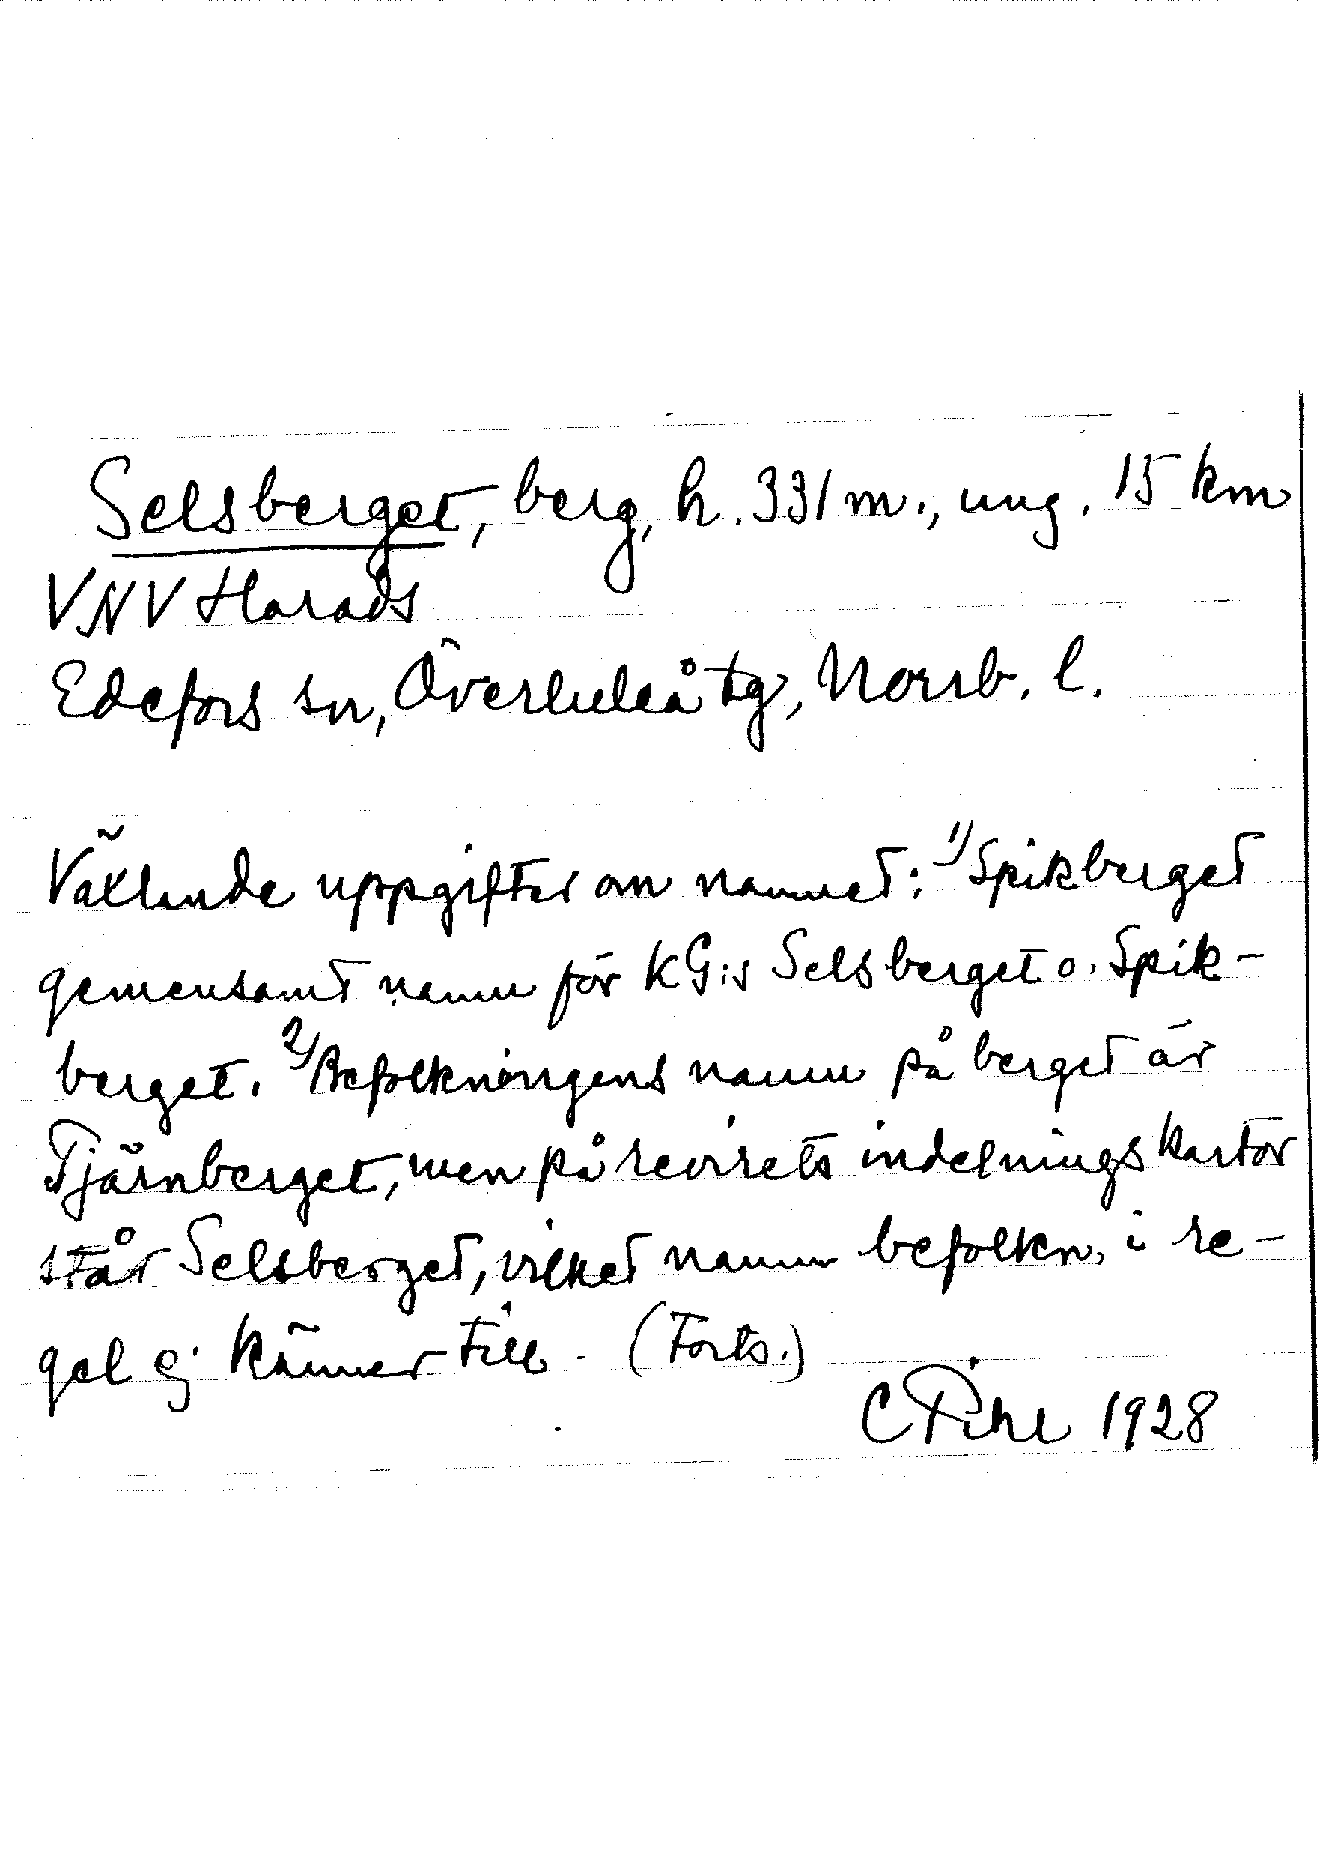 Selsberget, berg, h. 331 m., ung. 15 km
VNV Harads
Edefors sn, Överluleå tg, Norrb. l.
Växlande uppgifter om namnet: 1) Spikberget
gemensamt namn för KG:s Selsberget o. Spik-
berget. 2) Befolkningens namn på berget är
Tjärnberget, men på revirets indelningskartor
står Selsberget, vilket namn befolkn. i re-
gel ej känner till. (Forts.)
C Pihl 1928